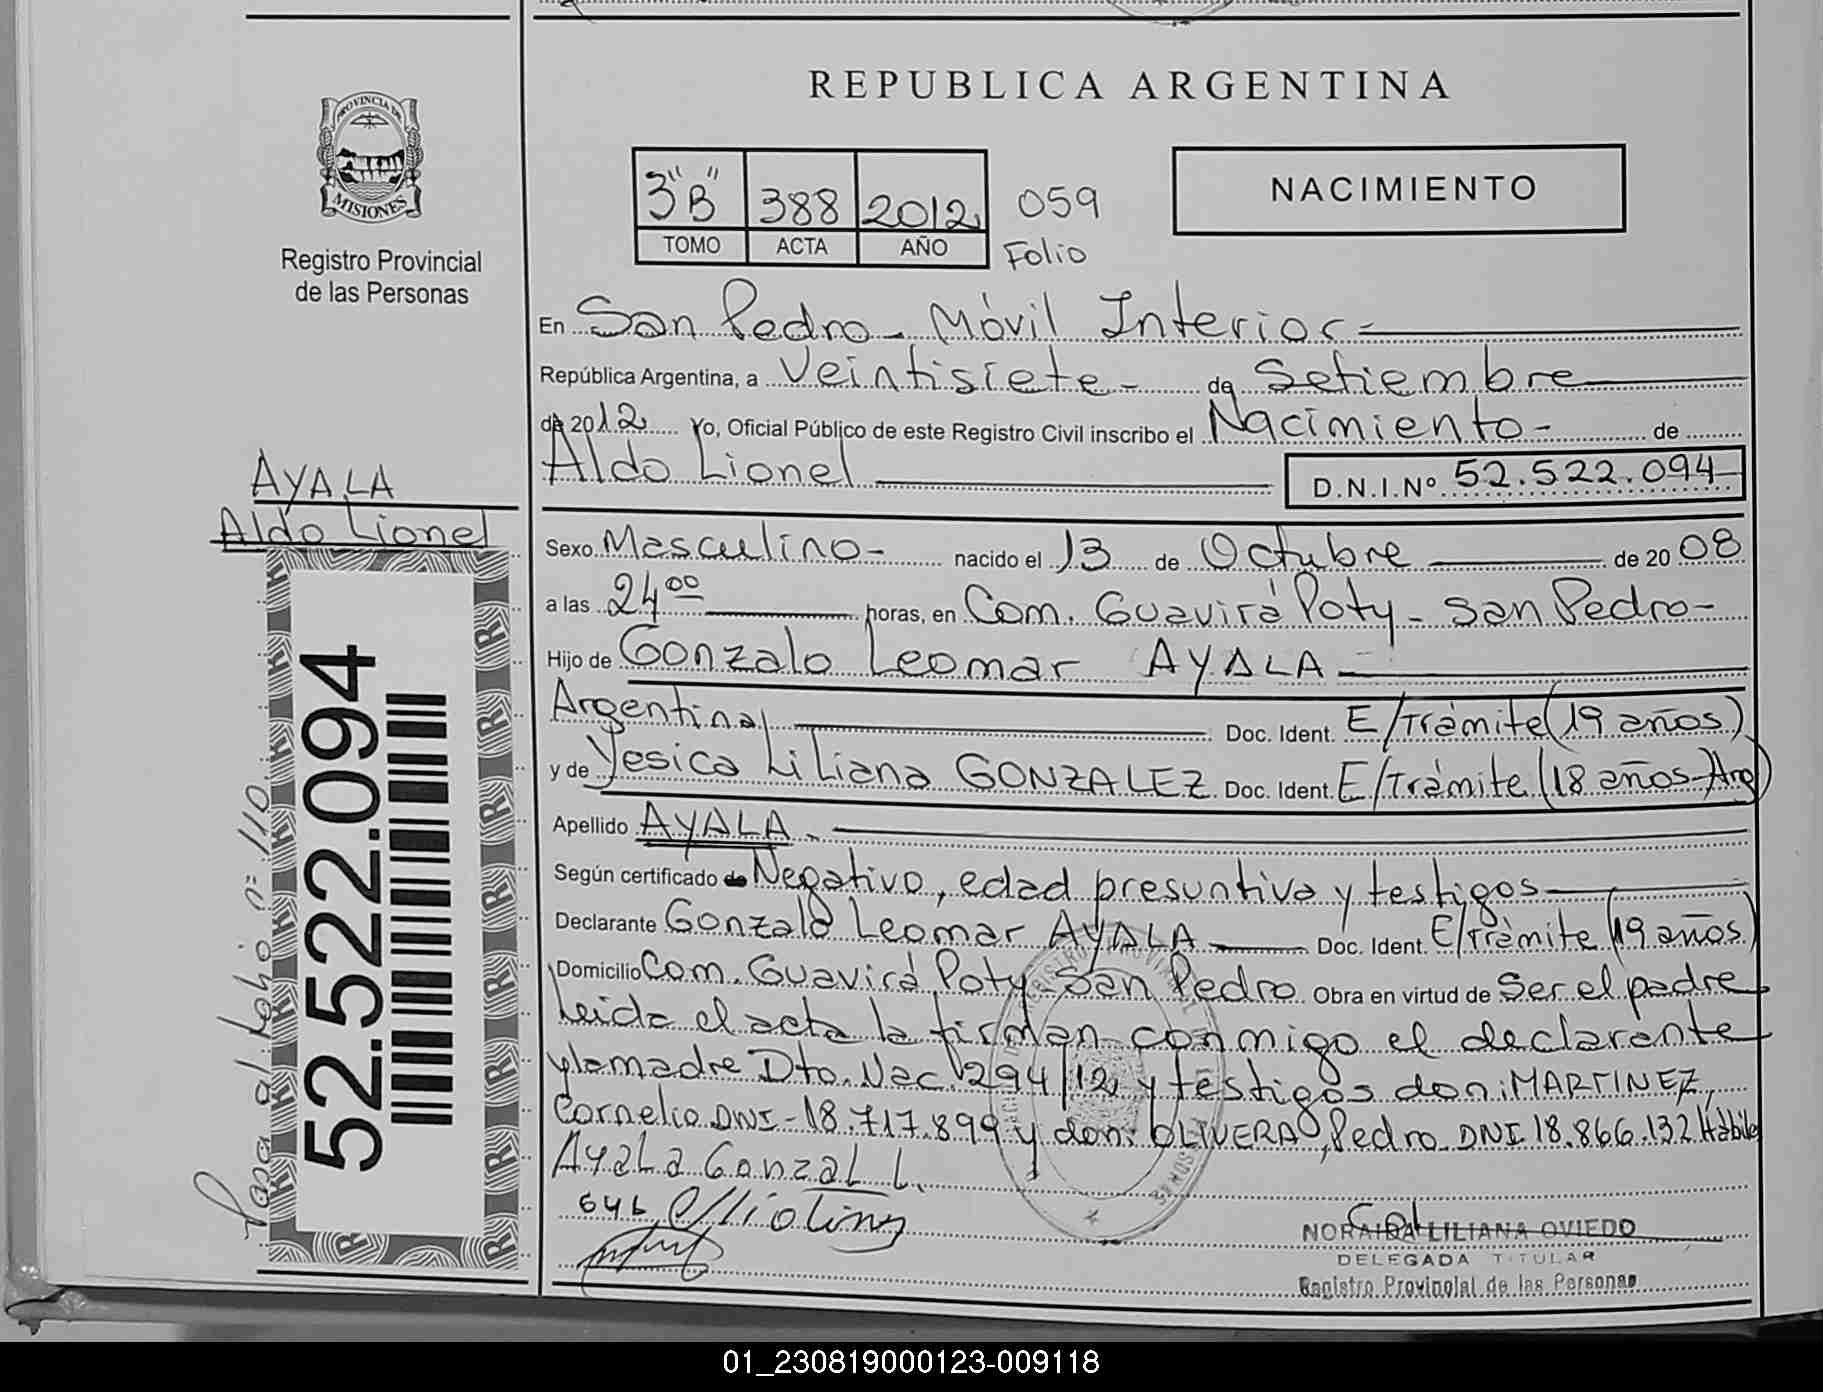 PROVINCIA DE
MISIONES
Registro Provincial
de las Personas
REPUBLICA ARGENTINA
3"B" 388 2012 059
TOMO ACTA AÑO Folio
NACIMIENTO
En San Pedro - Móvil Interior -
República Argentina, a Veintisiete - de Setiembre
de 2012 Yo, Oficial Público de este Registro Civil inscribo el Nacimiento - de
Aldo Lionel D.N.I.Nº 52.522.094
AYALA
Aldo Lionel
Sexo Masculino - nacido el 13 de Octubre de 2008
a las 24 00 horas, en Com. Guavirá Poty - San Pedro -
Hijo de Gonzalo Leomar AYALA
Argentina Doc. Ident. E/Trámite (19 años)
y de Yesica Liliana GONZALEZ Doc. Ident. E/Trámite (18 años-Arg)
Apellido AYALA.
Según certificado de Negativo, edad presuntiva y testigos
Declarante Gonzalo Leomar AYALA Doc. Ident. E/Trámite (19 años)
Domicilio Com. Guavirá Poty San Pedro Obra en virtud de Ser el padre
Leida el acta la firman conmigo el declarante
y la madre Dto. Nac. 1294/12, y testigos don: MARTINEZ,
Cornelio DNI - 18.717.899 y don: OLIVERA, Pedro DNI 18.866.132 Hábiles
Ayala Gonzal L.
NORAIDA LILIANA OVIEDO
DELEGADA TITULAR
Registro Provincial de las Personas
52.522.094
Pasa al folio nº 110
01_230819000123-009118